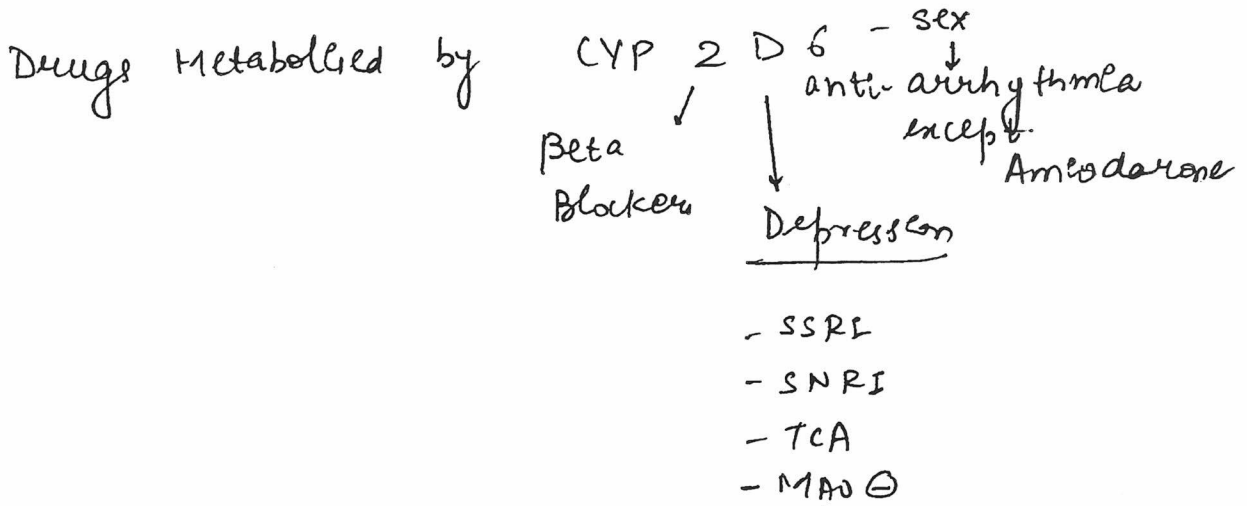 Drugs Metabolised by CYP 2 D 6 - sex
anti-arrhythmia
except
Amiodarone
Beta
Blocker
Depression
- SSRI
- SNRI
- TCA
- MAO ⊖